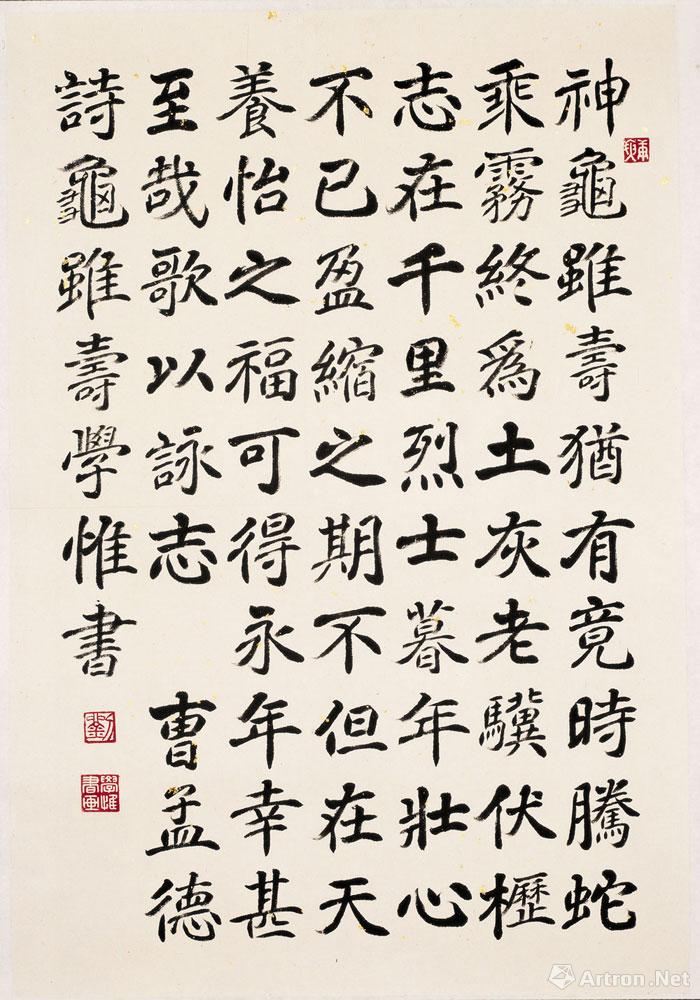 神龜雖壽猶有竟時騰蛇
乘霧終爲土灰老驥伏櫪
志在千里烈士暮年壯心
不已盈縮之期不但在天
養怡之福可得永年幸甚
至哉歌以詠志 曹孟德
詩龜雖壽學惟書
學惟書畫
Artron.Net